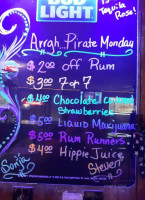 BUD
LIGHT
Tequila
Rose!
Arrgh, Pirate Monday
$2.00 off Rum
$3.00 7 or 7
$4.00 Chocolate covered
Strawberries
$5.00 Liquid Marijuana
$5.00 Rum Runners
$4.00 Hippie Juice
Sonja
Steven